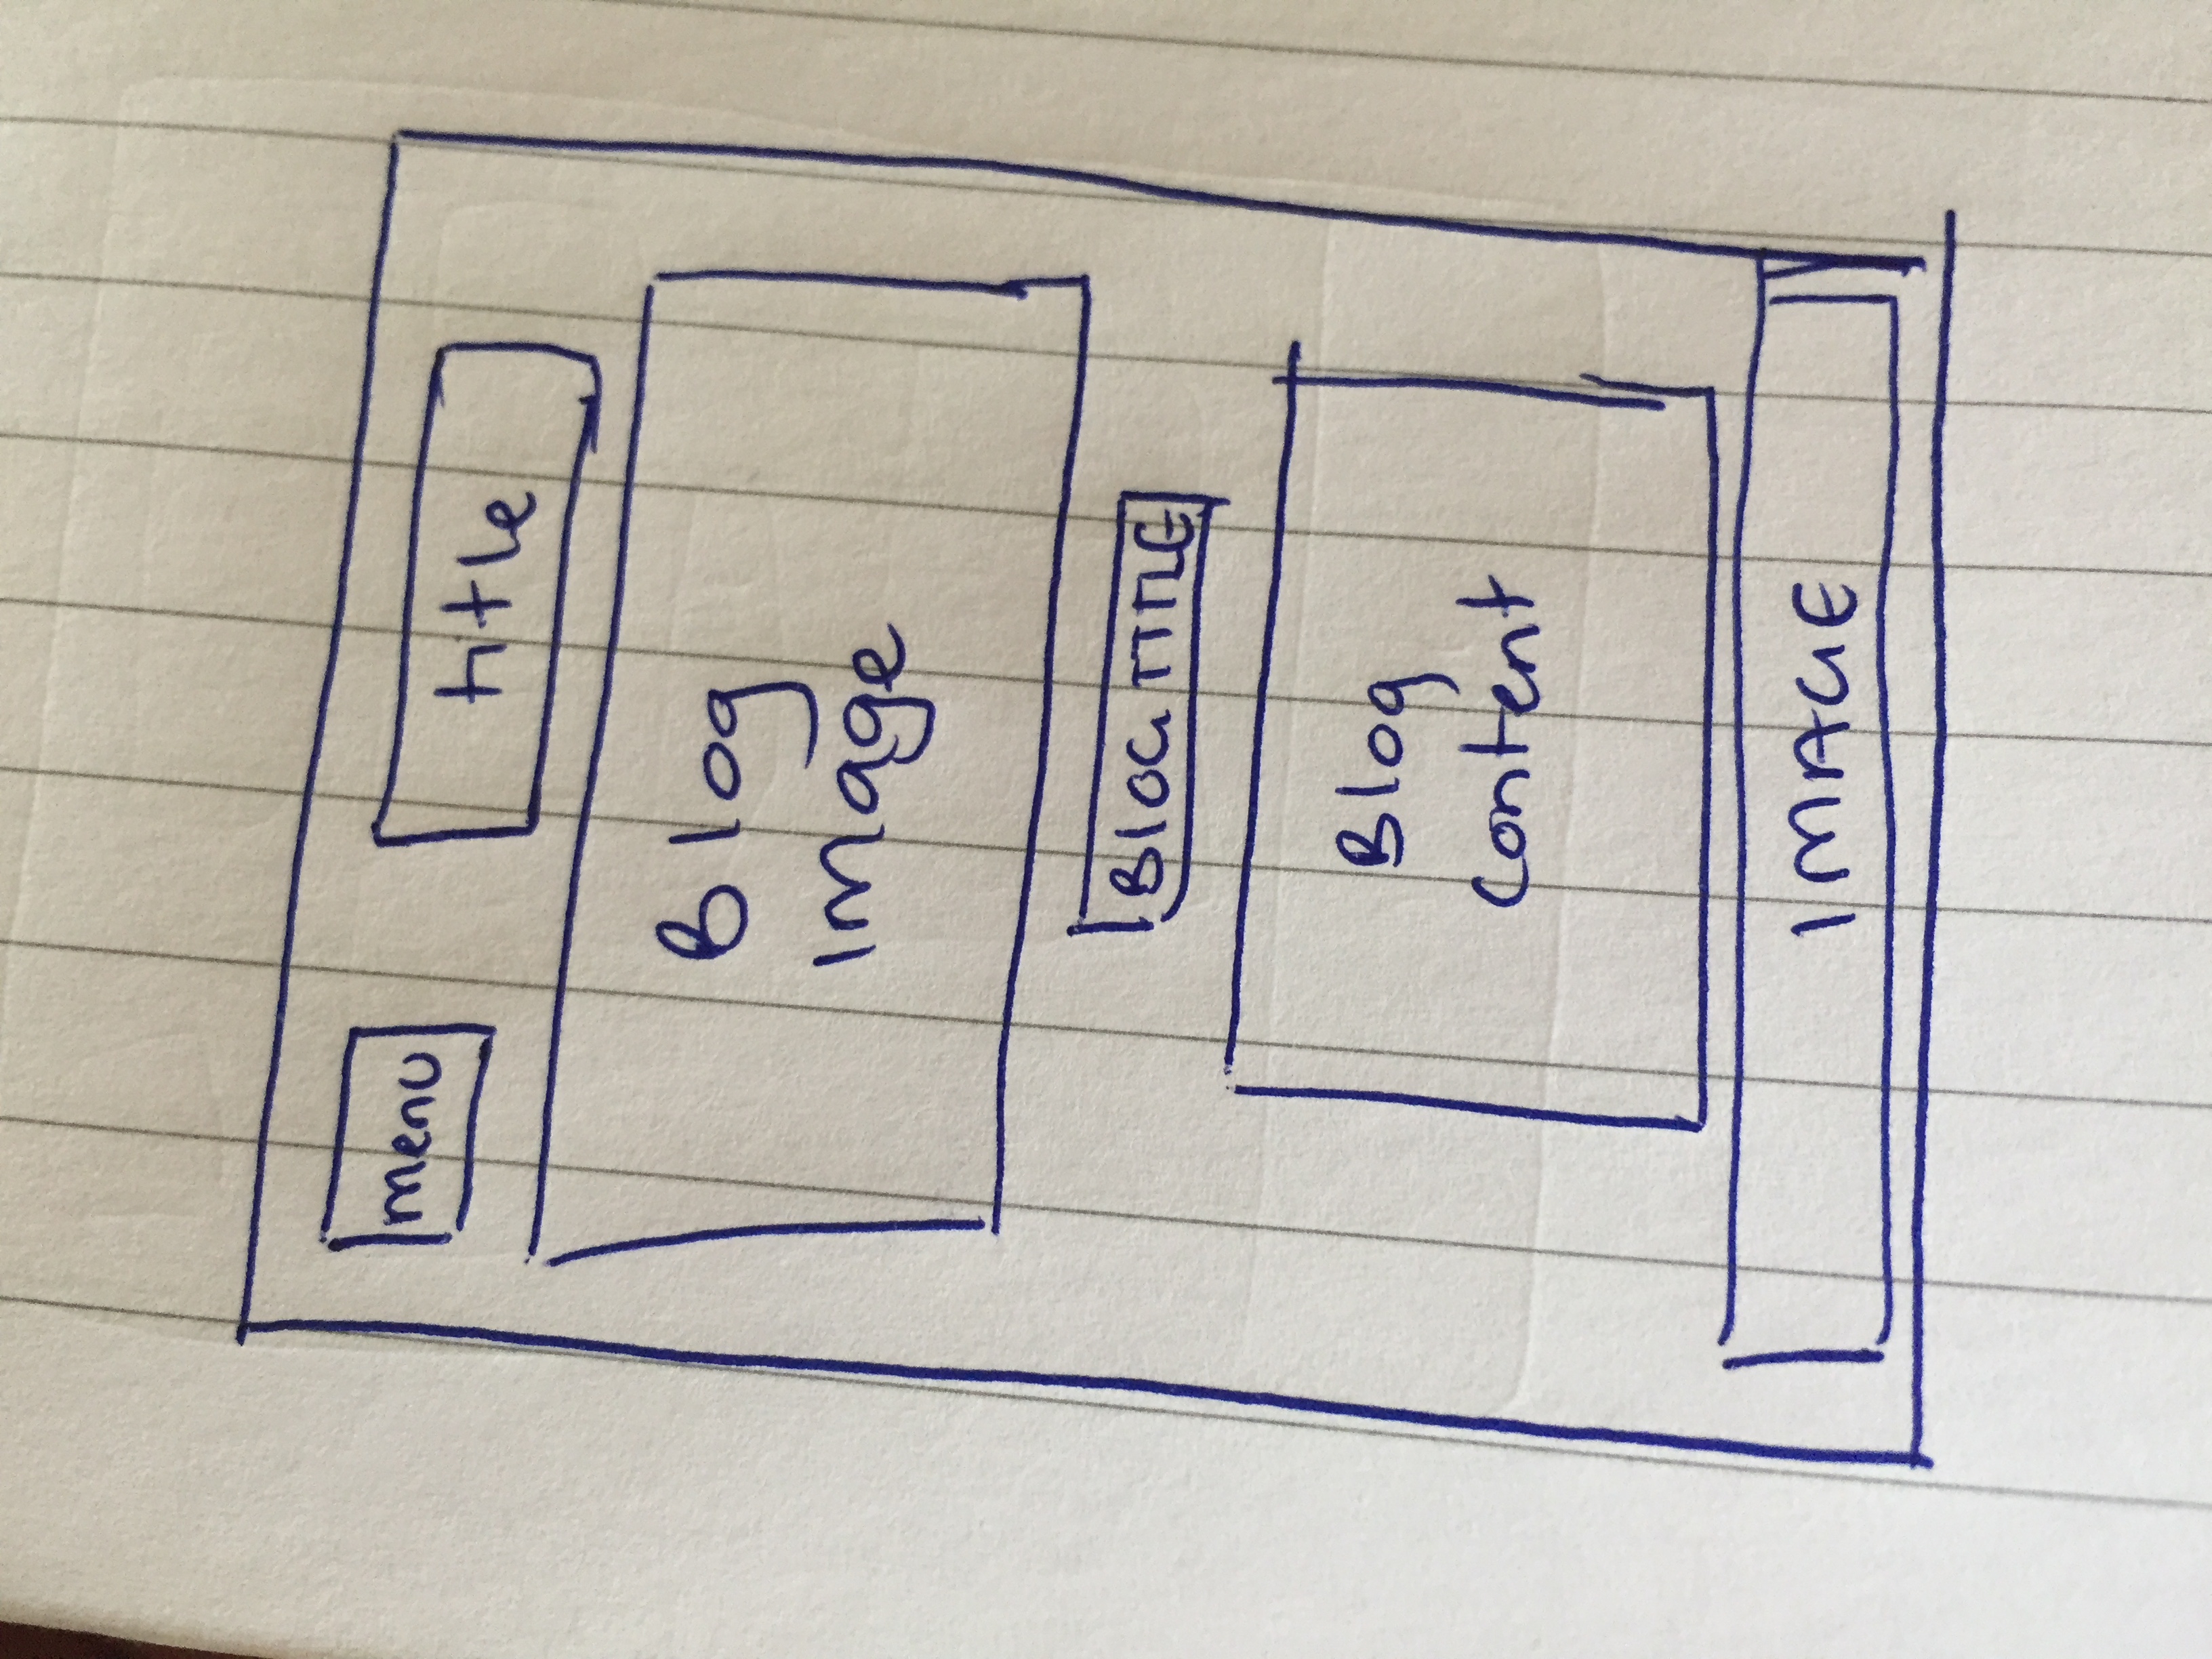 menu
title
Blog
image
BLOG TITLE
Blog
content
IMAGE